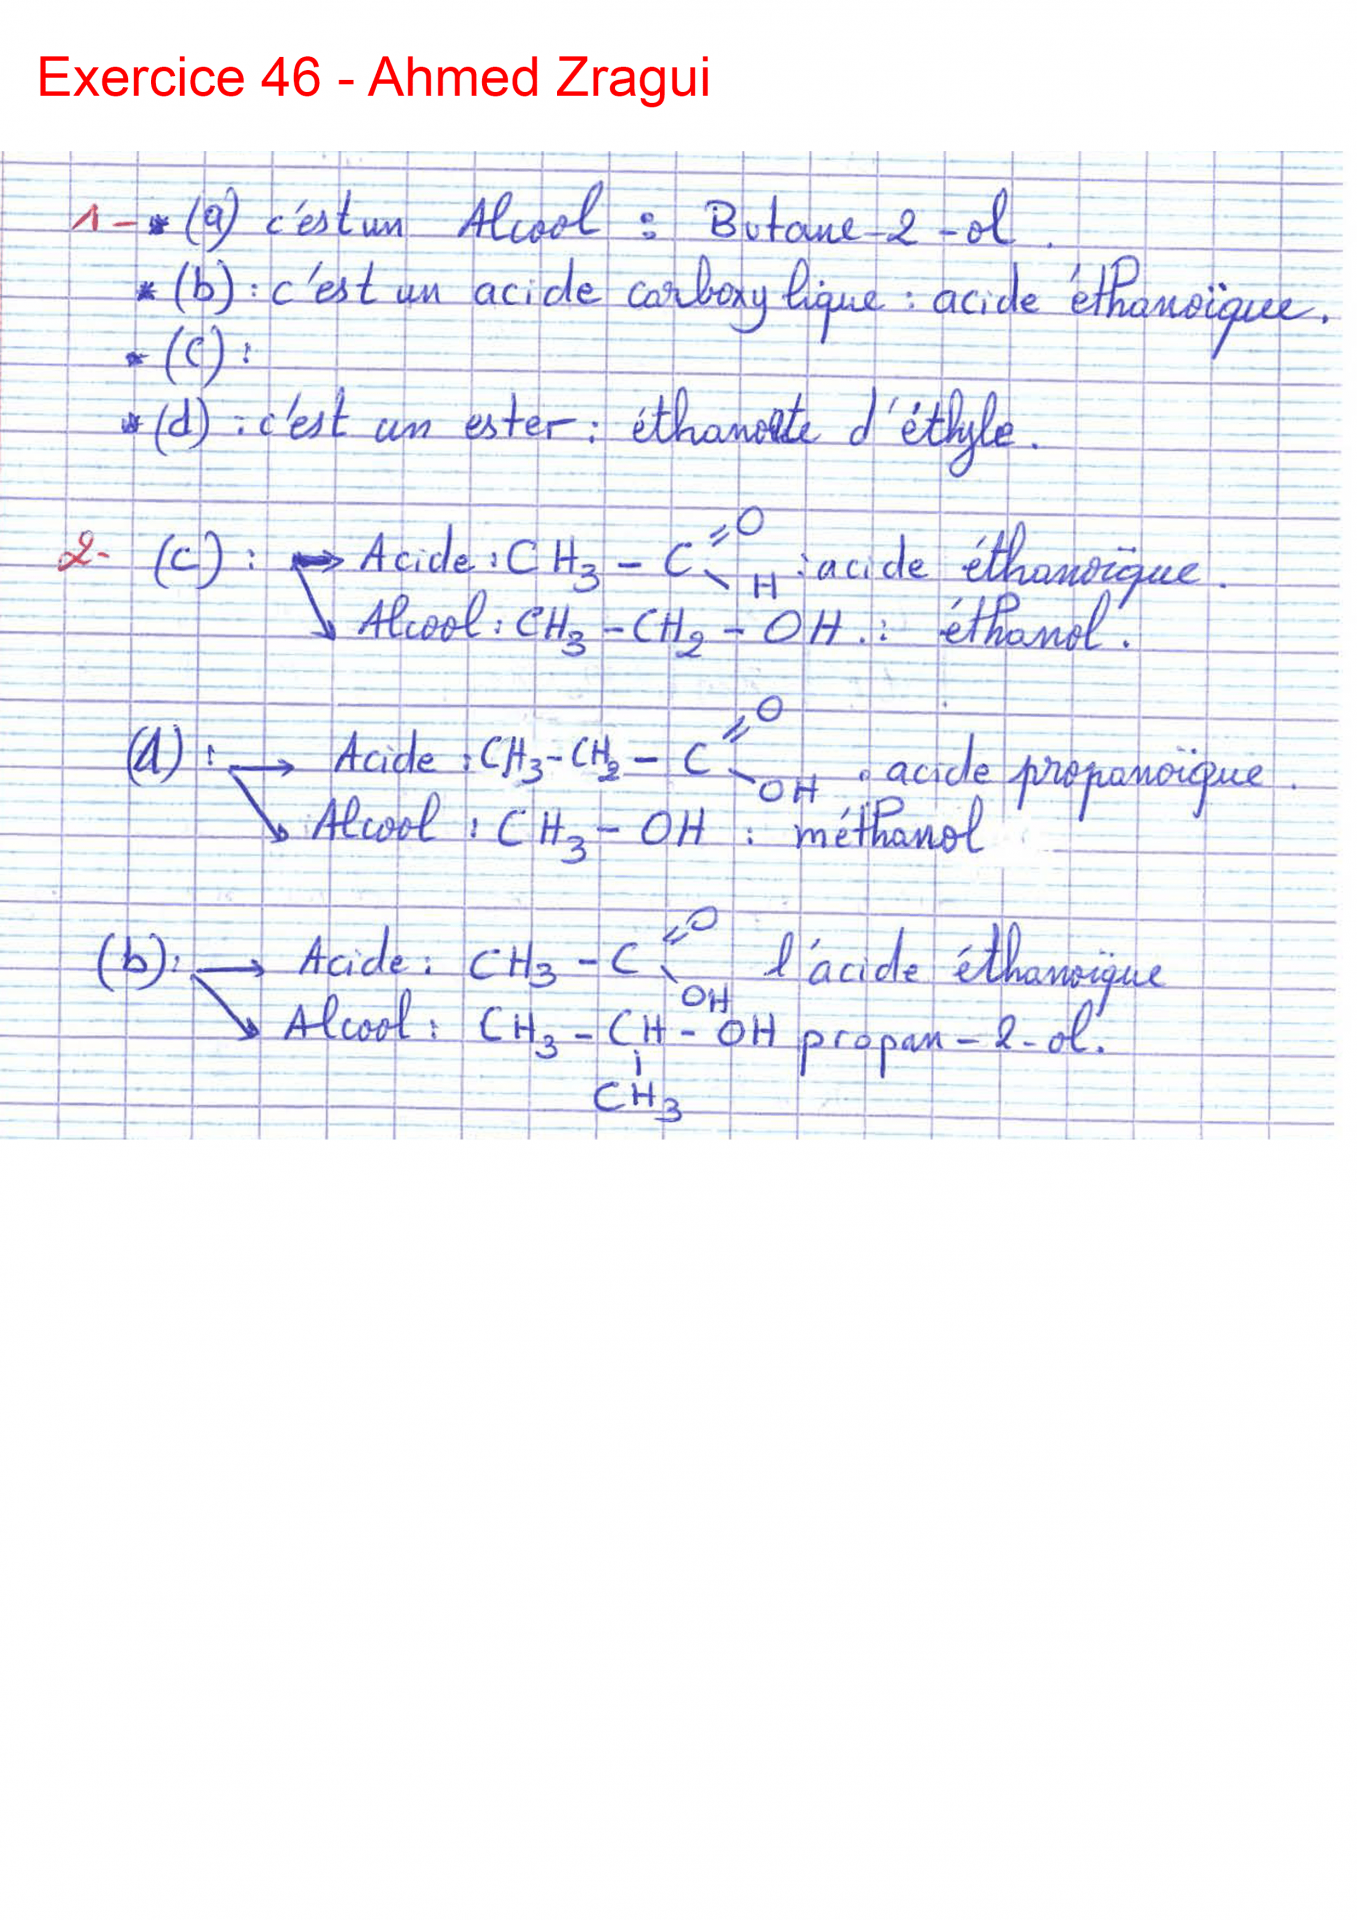 Exercice 46 - Ahmed Zragui
1- * (a) c'est un Alcool : Butane-2-ol.
* (b) : c'est un acide carboxylique : acide éthanoïque.
* (c) :
* (d) : c'est un ester : éthanoate d'éthyle.
2- (c) : → Acide : CH3 - C =O - H : acide éthanoïque.
↘ Alcool : CH3 - CH2 - OH. : éthanol.
(d) : → Acide : CH3 - CH2 - C =O - OH : acide propanoïque.
↘ Alcool : CH3 - OH : méthanol
(b) : → Acide : CH3 - C =O - OH l'acide éthanoïque
↘ Alcool : CH3 - CH - OH propan-2-ol.
CH3